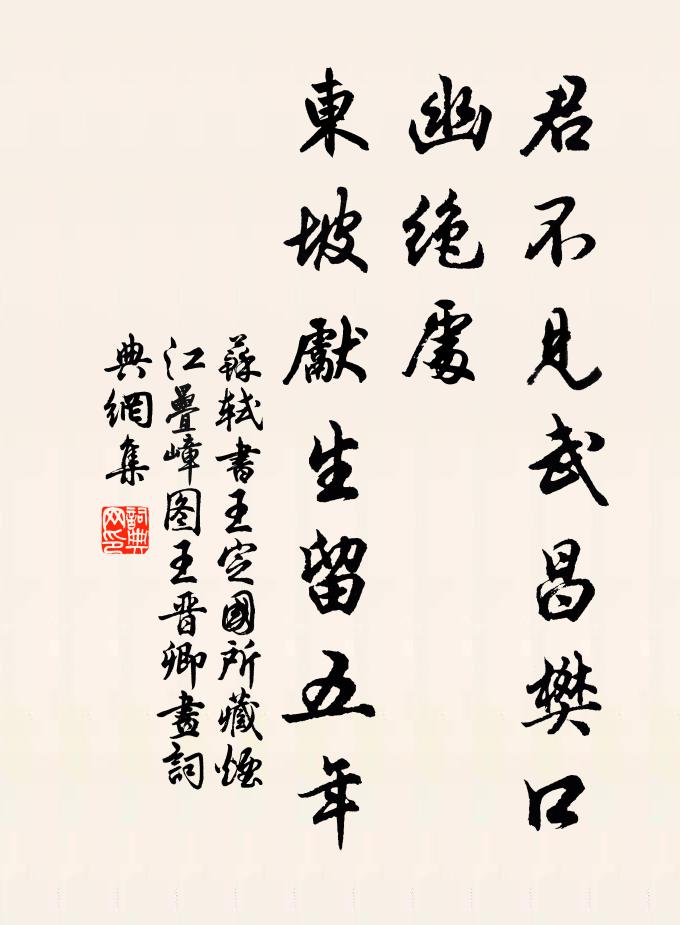 君不見武昌樊口
幽絕處
東坡獻生留五年
蘇軾書王定國所藏煙
江疊嶂图王晉卿畫詞
典網集
詞典
网印